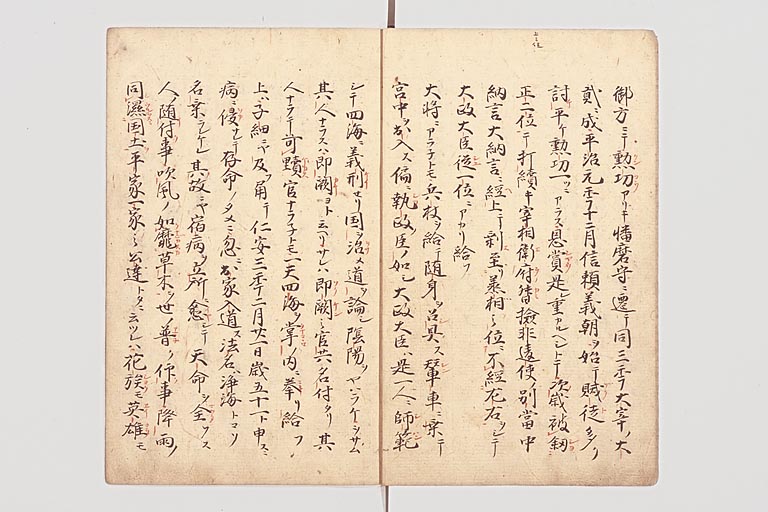 御方ニテ勲功アリキ幡磨守ニ遷テ同三年ヲ大宰ノ大
貳ニ成平治元年十二月信頼義朝ヲ始テ賊徒多ク
討平ケ勲功一ツニアラス恩賞是重カルヘシトテ次歳被釼
正三位ニテ打續キ宰相衛府督撿非違使ノ別當中
納言大納言ニ經上テ剩至丞相之位ニ不經左右シテ
大政大臣從一位ニアカリ給フ
大将ニアラネトモ兵杖ヲ給テ随身ヲ召具ス輦車ニ乗テ
宮中ヲ出入ス偏ニ執政臣ノ如シ大政大臣ハ是一人ニ師範
シテ四海ニ義刑セリ国ヲ治メ道ヲ論シ陰陽ヲヤハラケヲサム
其人ナラスハ即闕ヨト云リサレハ即闕之官共名付タリ其
人ナラテ可黷官ナラネトモ一天四海ヲ掌ノ内ニ拳リ給フ
上ハ子細ニヤ及フ角テ仁安三年十一月十一日歳五十一ト申スニ
病ニ侵サレテ存命ノタメニ忽ニ出家入道ス法名ハ浄海トコソ
名乗ラレケレ其故ニヤ宿病立所ニ愈シテ天命ヲ全ウス
人ノ随付事吹風ノ如靡草木ヲ世ノ普ク仰事降雨ノ
同濕国土ヲ平家一家之公達トタニ云ツレハ花族モ英雄モ